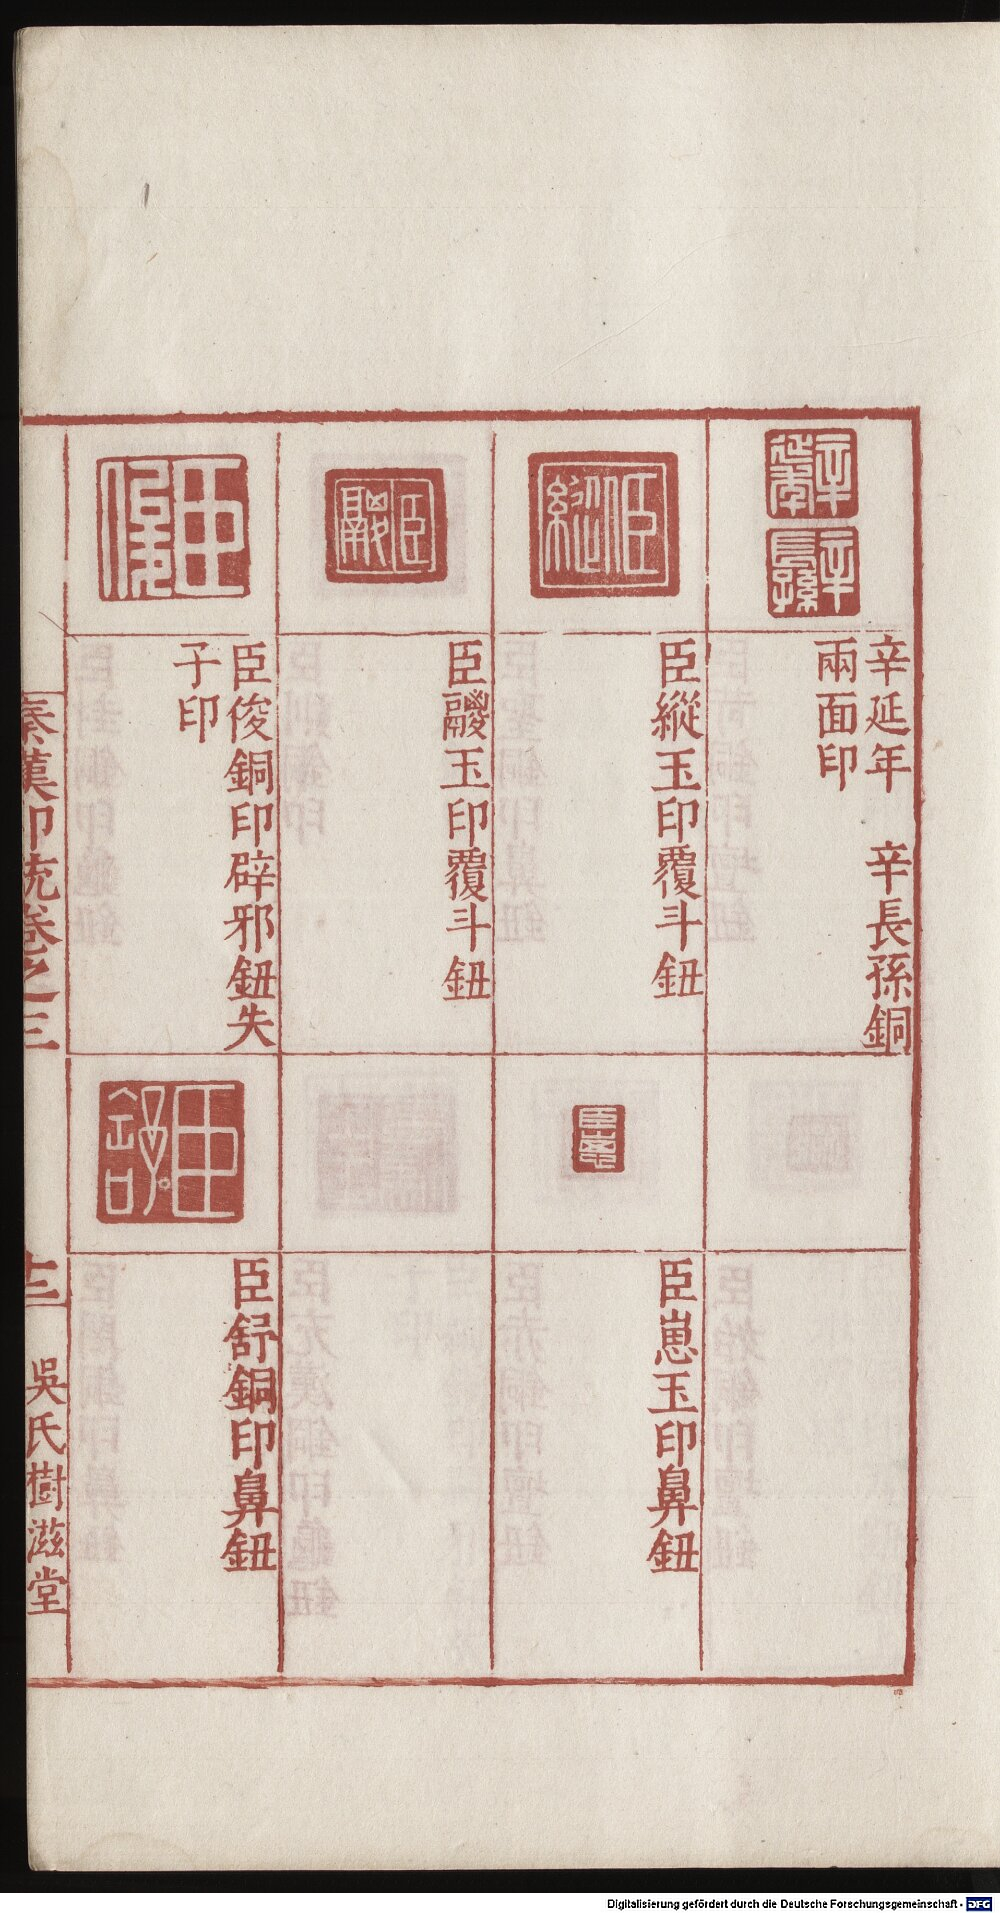 辛延年　辛長孫銅
兩面印
臣縱玉印覆斗鈕
臣 玉印覆斗鈕
臣俊銅印辟邪鈕失
子印
臣崽玉印鼻鈕
臣舒銅印鼻鈕
秦漢印統卷之三
十三
吳氏樹滋堂
Digitalisierung gefördert durch die Deutsche Forschungsgemeinschaft - DFG